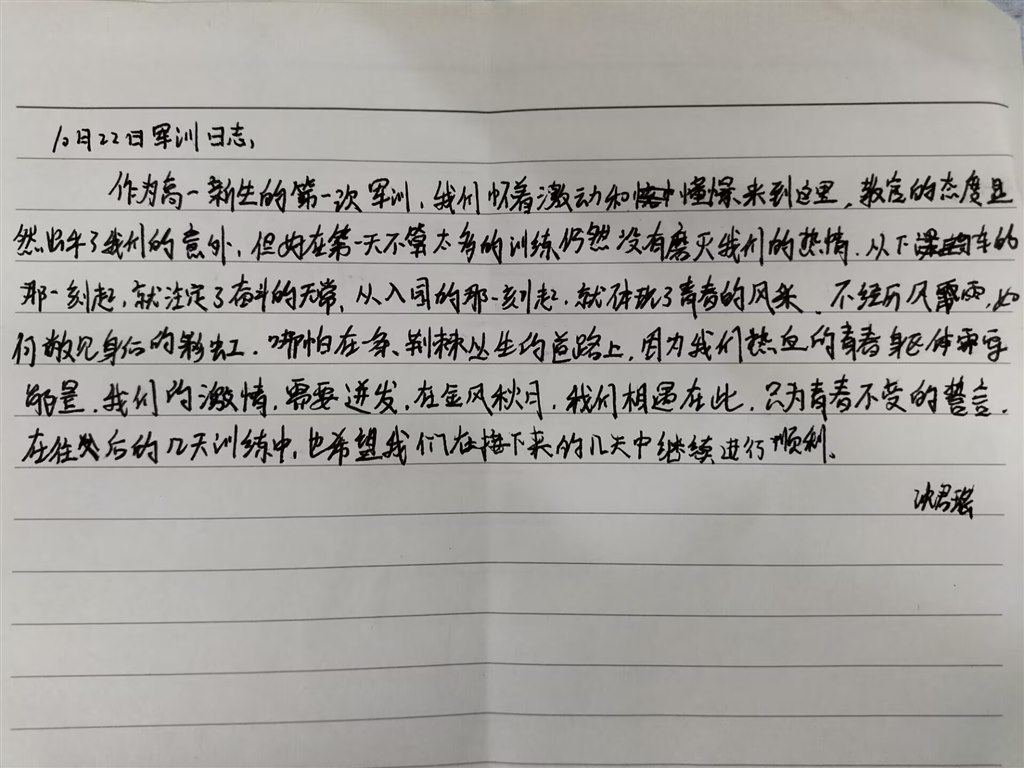 10月22日军训日志,
作为高一新生的第一次军训,我们怀着激动和憧憬来到这里,教官的态度虽
然出乎了我们的意外,但好在第一天不算太多的训练仍然没有磨灭我们的热情.从下车的
那一刻起,就注定了奋斗的无常,从入园的那一刻起,就体现了青春的风采.不经历风雨,如
何敢见身后的彩虹.哪怕在一条荆棘丛生的道路上,因为我们热血的青春身躯体需要
能量,我们的激情,需要迸发,在金风秋月,我们相遇在此,只为青春不变的誓言.
在往后的几天训练中,也希望我们在接下来的几天中继续进行顺利.
沈君瑶